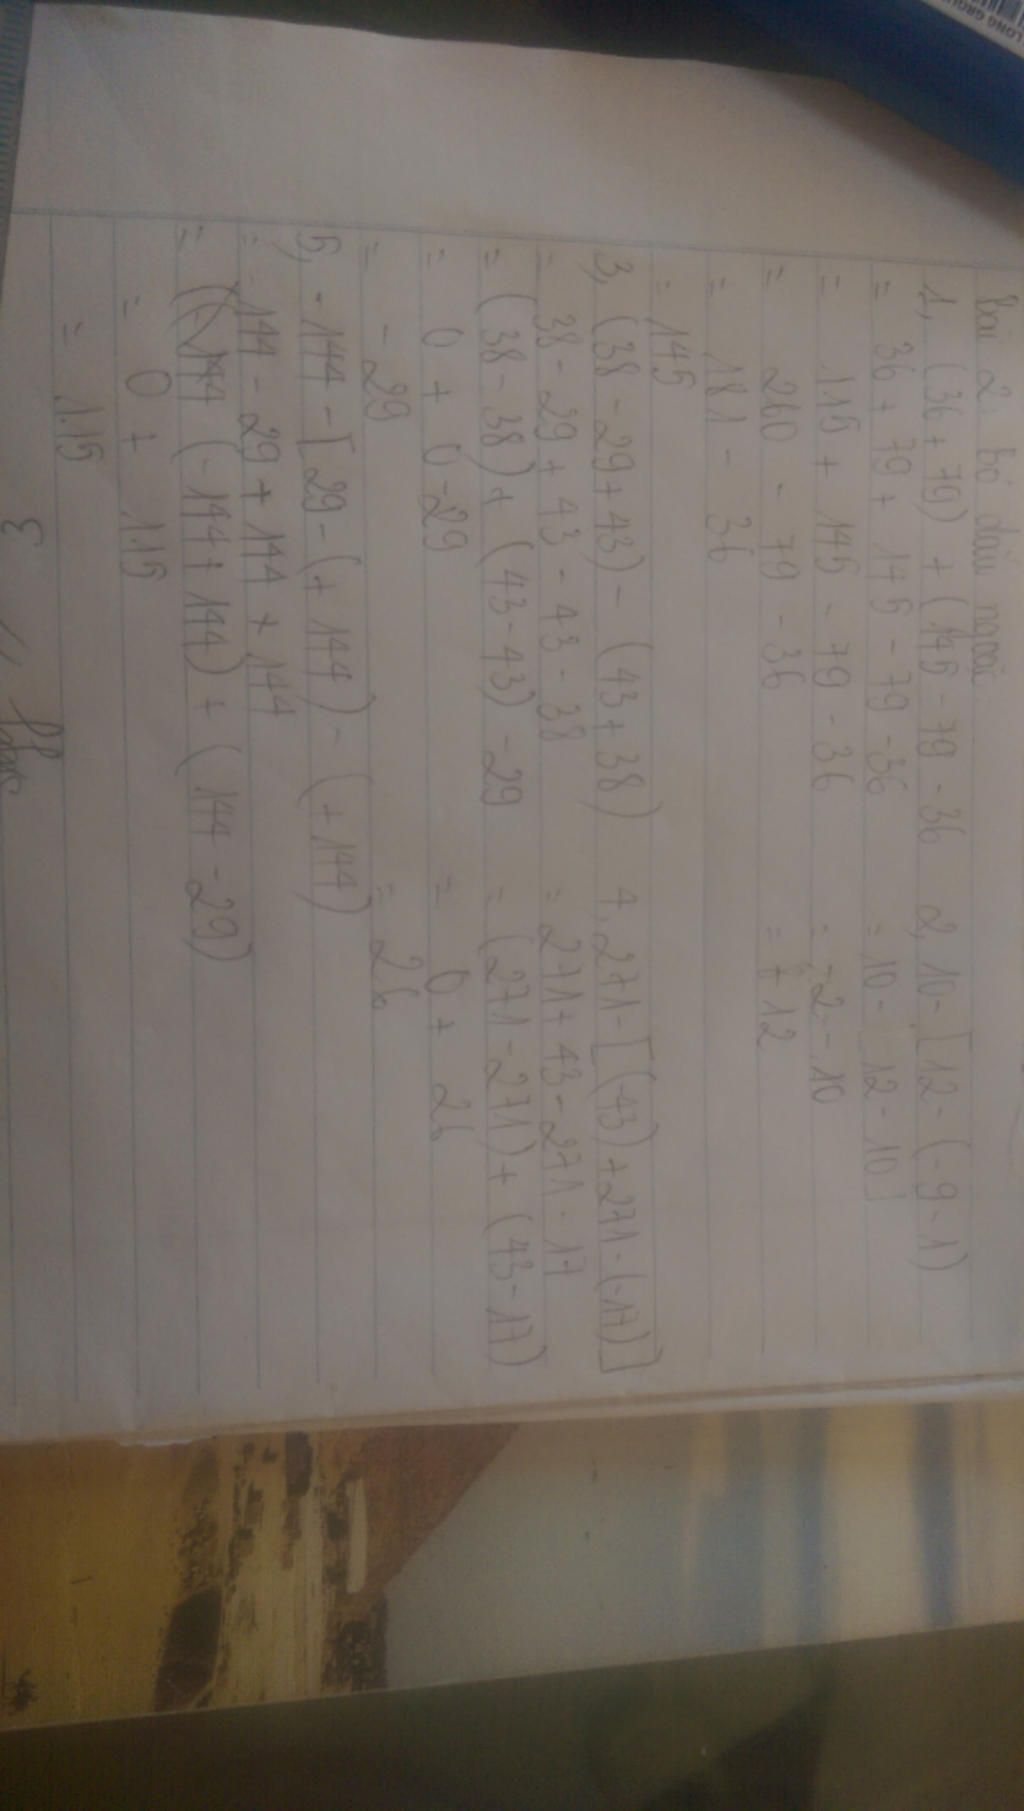 LONG GROU
Bài 2. bỏ dấu ngoặc
1, (36 + 79) + (145 - 79 - 36
= 36 + 79 + 145 - 79 - 36
= 115 + 145 - 79 - 36
= 260 - 79 - 36
= 181 - 36
= 145
2, 10 - [12 - (-9 - 1)
= 10 - [12 - 10]
= -2 - 10
= + 12
3, (38 - 29 + 43) - (43 + 38)
= 38 - 29 + 43 - 43 - 38
= (38 - 38) + (43 - 43) - 29
= 0 + 0 - 29
= - 29
4, 271 - [(-43) + 271 - (-17)]
= 271 + 43 - 271 - 17
= (271 - 271) + (43 - 17)
= 0 + 26
= 26
5, - 144 - [29 - (+ 144) - (+ 144)
= - 144 - 29 + 144 + 144
= (-144 + 144) + (144 - 29)
= 0 + 115
= 115